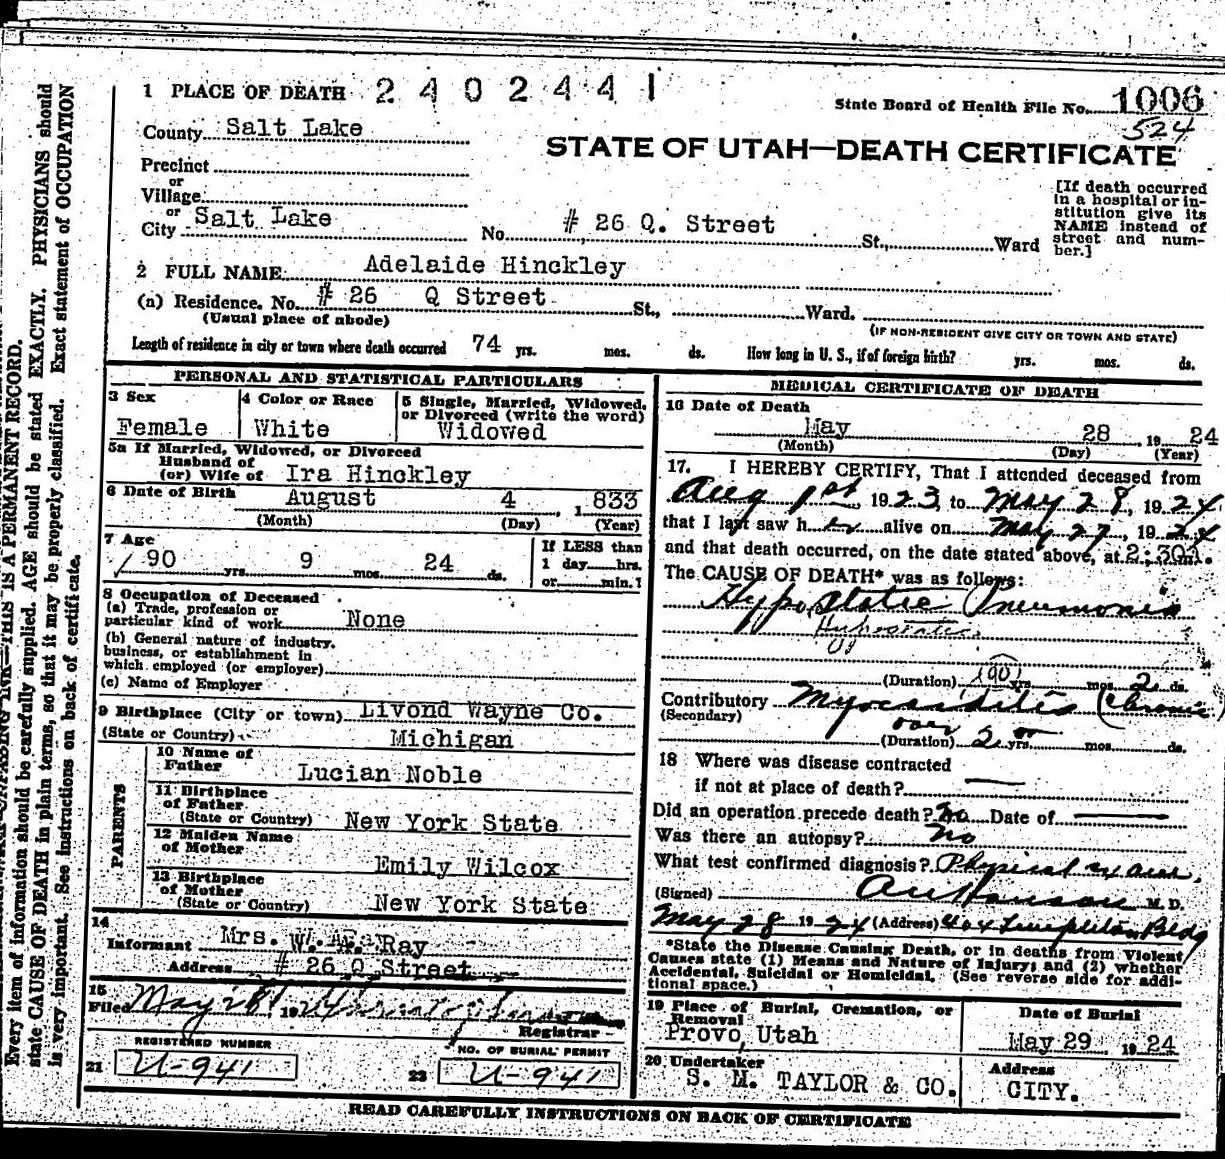 1 PLACE OF DEATH 2402441
State Board of Health File No. 1006
524
County Salt Lake
STATE OF UTAH—DEATH CERTIFICATE
Precinct
or
Village
or
City Salt Lake No. # 26 Q. Street St., Ward
[If death occurred in a hospital or in-
stitution give its
NAME instead of
street and num-
ber.]
2 FULL NAME Adelaide Hinckley
(a) Residence. No. # 26 Q Street St., Ward.
(Usual place of abode) (IF NON-RESIDENT GIVE CITY OR TOWN AND STATE)
Length of residence in city or town where death occurred 74 yrs. mos. ds. How long in U. S., if of foreign birth? yrs. mos. ds.
PERSONAL AND STATISTICAL PARTICULARS
3 Sex
Female
4 Color or Race
White
5 Single, Married, Widowed,
or Divorced (write the word)
Widowed
5a If Married, Widowed, or Divorced
Husband of
(or) Wife of Ira Hinckley
6 Date of Birth August 4, 1833
(Month) (Day) (Year)
7 Age
90 yrs. 9 mos. 24 ds.
If LESS than
1 day hrs.
or min.?
8 Occupation of Deceased
(a) Trade, profession or
particular kind of work None
(b) General nature of industry,
business, or establishment in
which employed (or employer)
(c) Name of Employer
9 Birthplace (City or town) Livond Wayne Co.
(State or Country) Michigan
PARENTS
10 Name of
Father Lucian Noble
11 Birthplace
of Father
(State or Country) New York State
12 Maiden Name
of Mother Emily Wilcox
13 Birthplace
of Mother
(State or Country) New York State
14
Informant Mrs. Ray
Address # 26 Q Street
15
Filed May 28 1924
Registrar
REGISTERED NUMBER
21 U-941
NO. OF BURIAL PERMIT
22 U-941
MEDICAL CERTIFICATE OF DEATH
16 Date of Death
May 28, 1924
(Month) (Day) (Year)
17. I HEREBY CERTIFY, That I attended deceased from
Aug 1st, 1923, to May 28, 1924,
that I last saw her alive on May 27, 1924
and that death occurred, on the date stated above, at 2:30A.
The CAUSE OF DEATH* was as follows:
Hypostatic Pneumonia
Hypostatic
(Duration) (90) yrs. mos. 2 ds.
Contributory Myocarditis (Chronic)
(Secondary)
over
(Duration) 2 yrs. mos. ds.
18 Where was disease contracted
if not at place of death? —
Did an operation precede death? No Date of —
Was there an autopsy? No
What test confirmed diagnosis? Physical
(Signed) M. D.
May 28 1924 (Address) 404 Templeton Bldg
*State the Disease Causing Death, or in deaths from Violent
Causes state (1) Means and Nature of Injury; and (2) whether
Accidental, Suicidal or Homicidal. (See reverse side for addi-
tional space.)
19 Place of Burial, Cremation, or
Removal
Provo, Utah
Date of Burial
May 29 1924
20 Undertaker
S. M. TAYLOR & CO.
Address
CITY.
READ CAREFULLY INSTRUCTIONS ON BACK OF CERTIFICATE
THIS IS A PERMANENT RECORD.
Every item of information should be carefully supplied. AGE should be stated EXACTLY. PHYSICIANS should
state CAUSE OF DEATH in plain terms, so that it may be properly classified. Exact statement of OCCUPATION
is very important. See instructions on back of certificate.